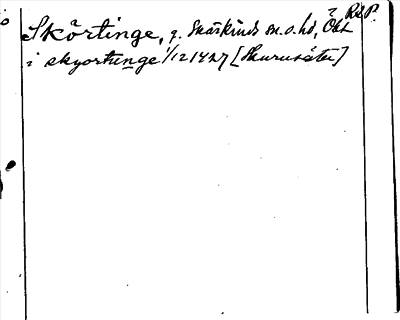 RäP.
Skörtinge, g. Skärkinds sn. o. hd, Ögl.
i skyortinge 1/12 1427 [Skurusäter]